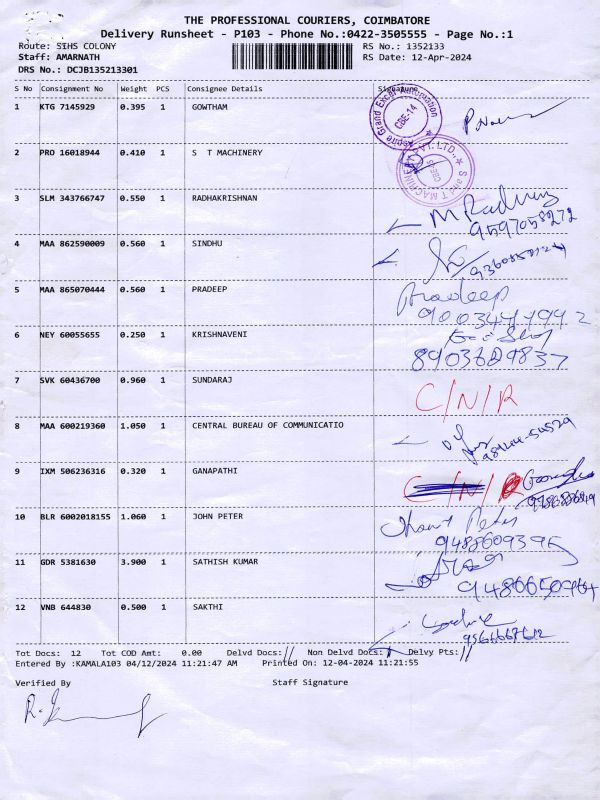 THE PROFESSIONAL COURIERS, COIMBATORE
Delivery Runsheet - P103 - Phone No.:0422-3505555 - Page No.:1
Route: SIHS COLONY RS No.: 1352133
Staff: AMARNATH RS Date: 12-Apr-2024
DRS No.: DCJB135213301
S No Consignment No Weight PCS Consignee Details Signature
1 KTG 7145929 0.395 1 GOWTHAM
Aspire Grand Excel Information CBE-14
2 PRO 16018944 0.410 1 S T MACHINERY
S and T MACHINERY PVT. LTD., CBE
3 SLM 343766747 0.550 1 RADHAKRISHNAN
9597058272
4 MAA 862590009 0.560 1 SINDHU
5 MAA 865070444 0.560 1 PRADEEP Pradeep
6 NEY 60055655 0.250 1 KRISHNAVENI
7 SVK 60436700 0.960 1 SUNDARAJ C/N/R
8 MAA 600219360 1.050 1 CENTRAL BUREAU OF COMMUNICATIO
9 IXM 506236316 0.320 1 GANAPATHI C/N/R
10 BLR 6002018155 1.060 1 JOHN PETER Peter
11 GDR 5381630 3.900 1 SATHISH KUMAR
12 VNB 644830 0.500 1 SAKTHI
Tot Docs: 12 Tot COD Amt: 0.00 Delvd Docs: 11 Non Delvd Docs: 1 Delvy Pts: 11
Entered By :KAMALA103 04/12/2024 11:21:47 AM Printed On: 12-04-2024 11:21:55
Verified By Staff Signature